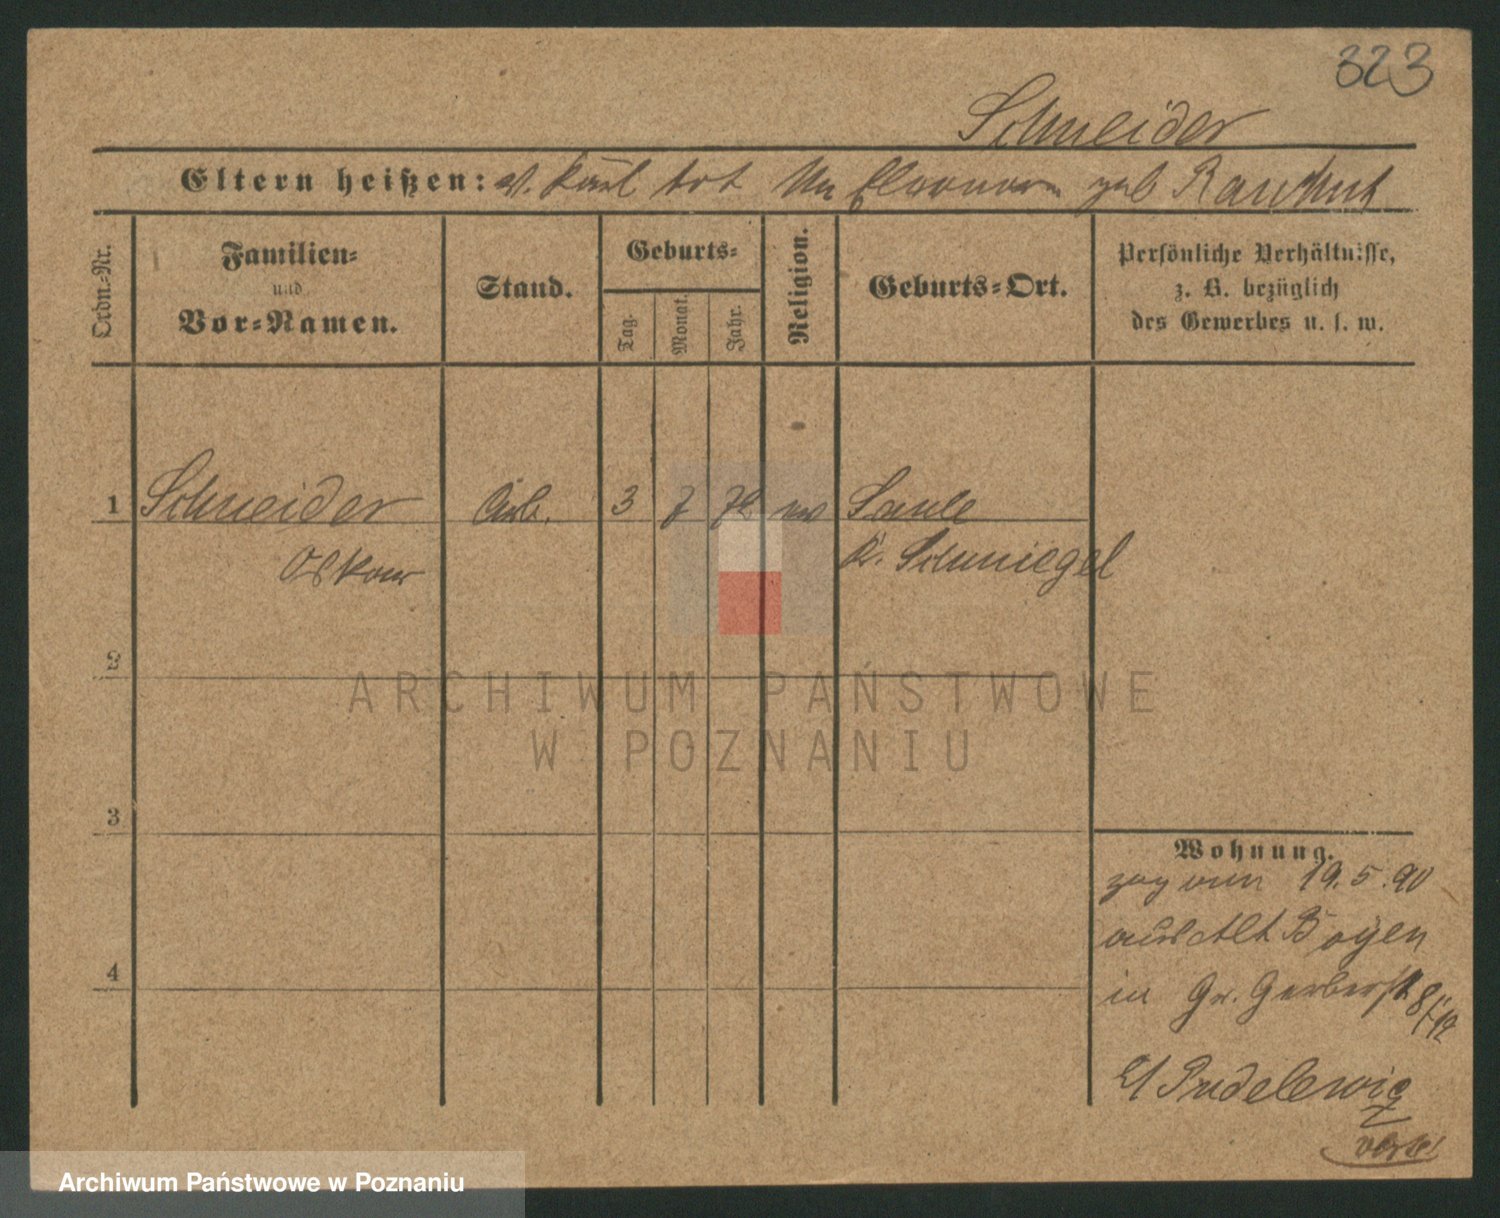 323
Schneider
Eltern heißen: V. Karl tot Mu Eleonore geb Rauhut
Ordn.-Nr.
Familien-
und
Vor-Namen.
Stand.
Geburts-
Tag.
Monat.
Jahr.
Religion.
Geburts-Ort.
Persönliche Verhältnisse,
z. B. bezüglich
des Gewerbes u. s. w.
1 Schneider Arb. 3 7 72 ev Saule
Oskar Kr. Schmiegel
2
3
4
Wohnung.
zog am 19.5.90
aus Alt Boyen
in Gr. Gerberst 8/12
b/ Pudelewicz
ARCHIWUM PAŃSTWOWE
W POZNANIU
Archiwum Państwowe w Poznaniu